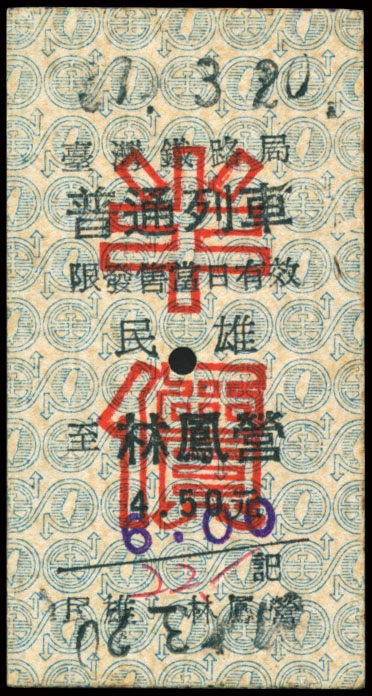 3.20.
臺灣鐵路局
普通列車
半價
限發售當日有效
民雄
至林鳳營
4.50元
6.00
記
民雄－林鳳營
3.20